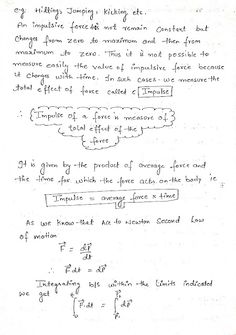 e.g. Hitting, Jumping, kicking etc.
An impulsive force do not remain constant but
changes from zero to maximum and then from
maximum to zero. Thus it is not possible to
measure easily the value of impulsive force because
it changes with time. In such cases we measure the
total effect of force called Impulse
Impulse of a force is measure of
total effect of the
force
It is given by the product of average force and
the time for which the force acts on the body ie
Impulse = average force × time
As we know that Acc to Newton Second Law
of motion
F⃗ = dP⃗/dt
∴ F⃗ dt = dP⃗
Integrating b/s within the limits indicated
we get ∫ F⃗ dt = ∫ dP⃗